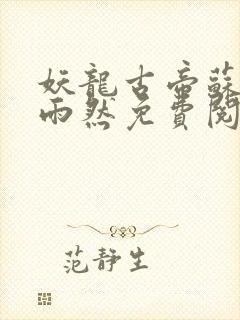 妖龍古帝蘇
雨然免費閱
范靜生